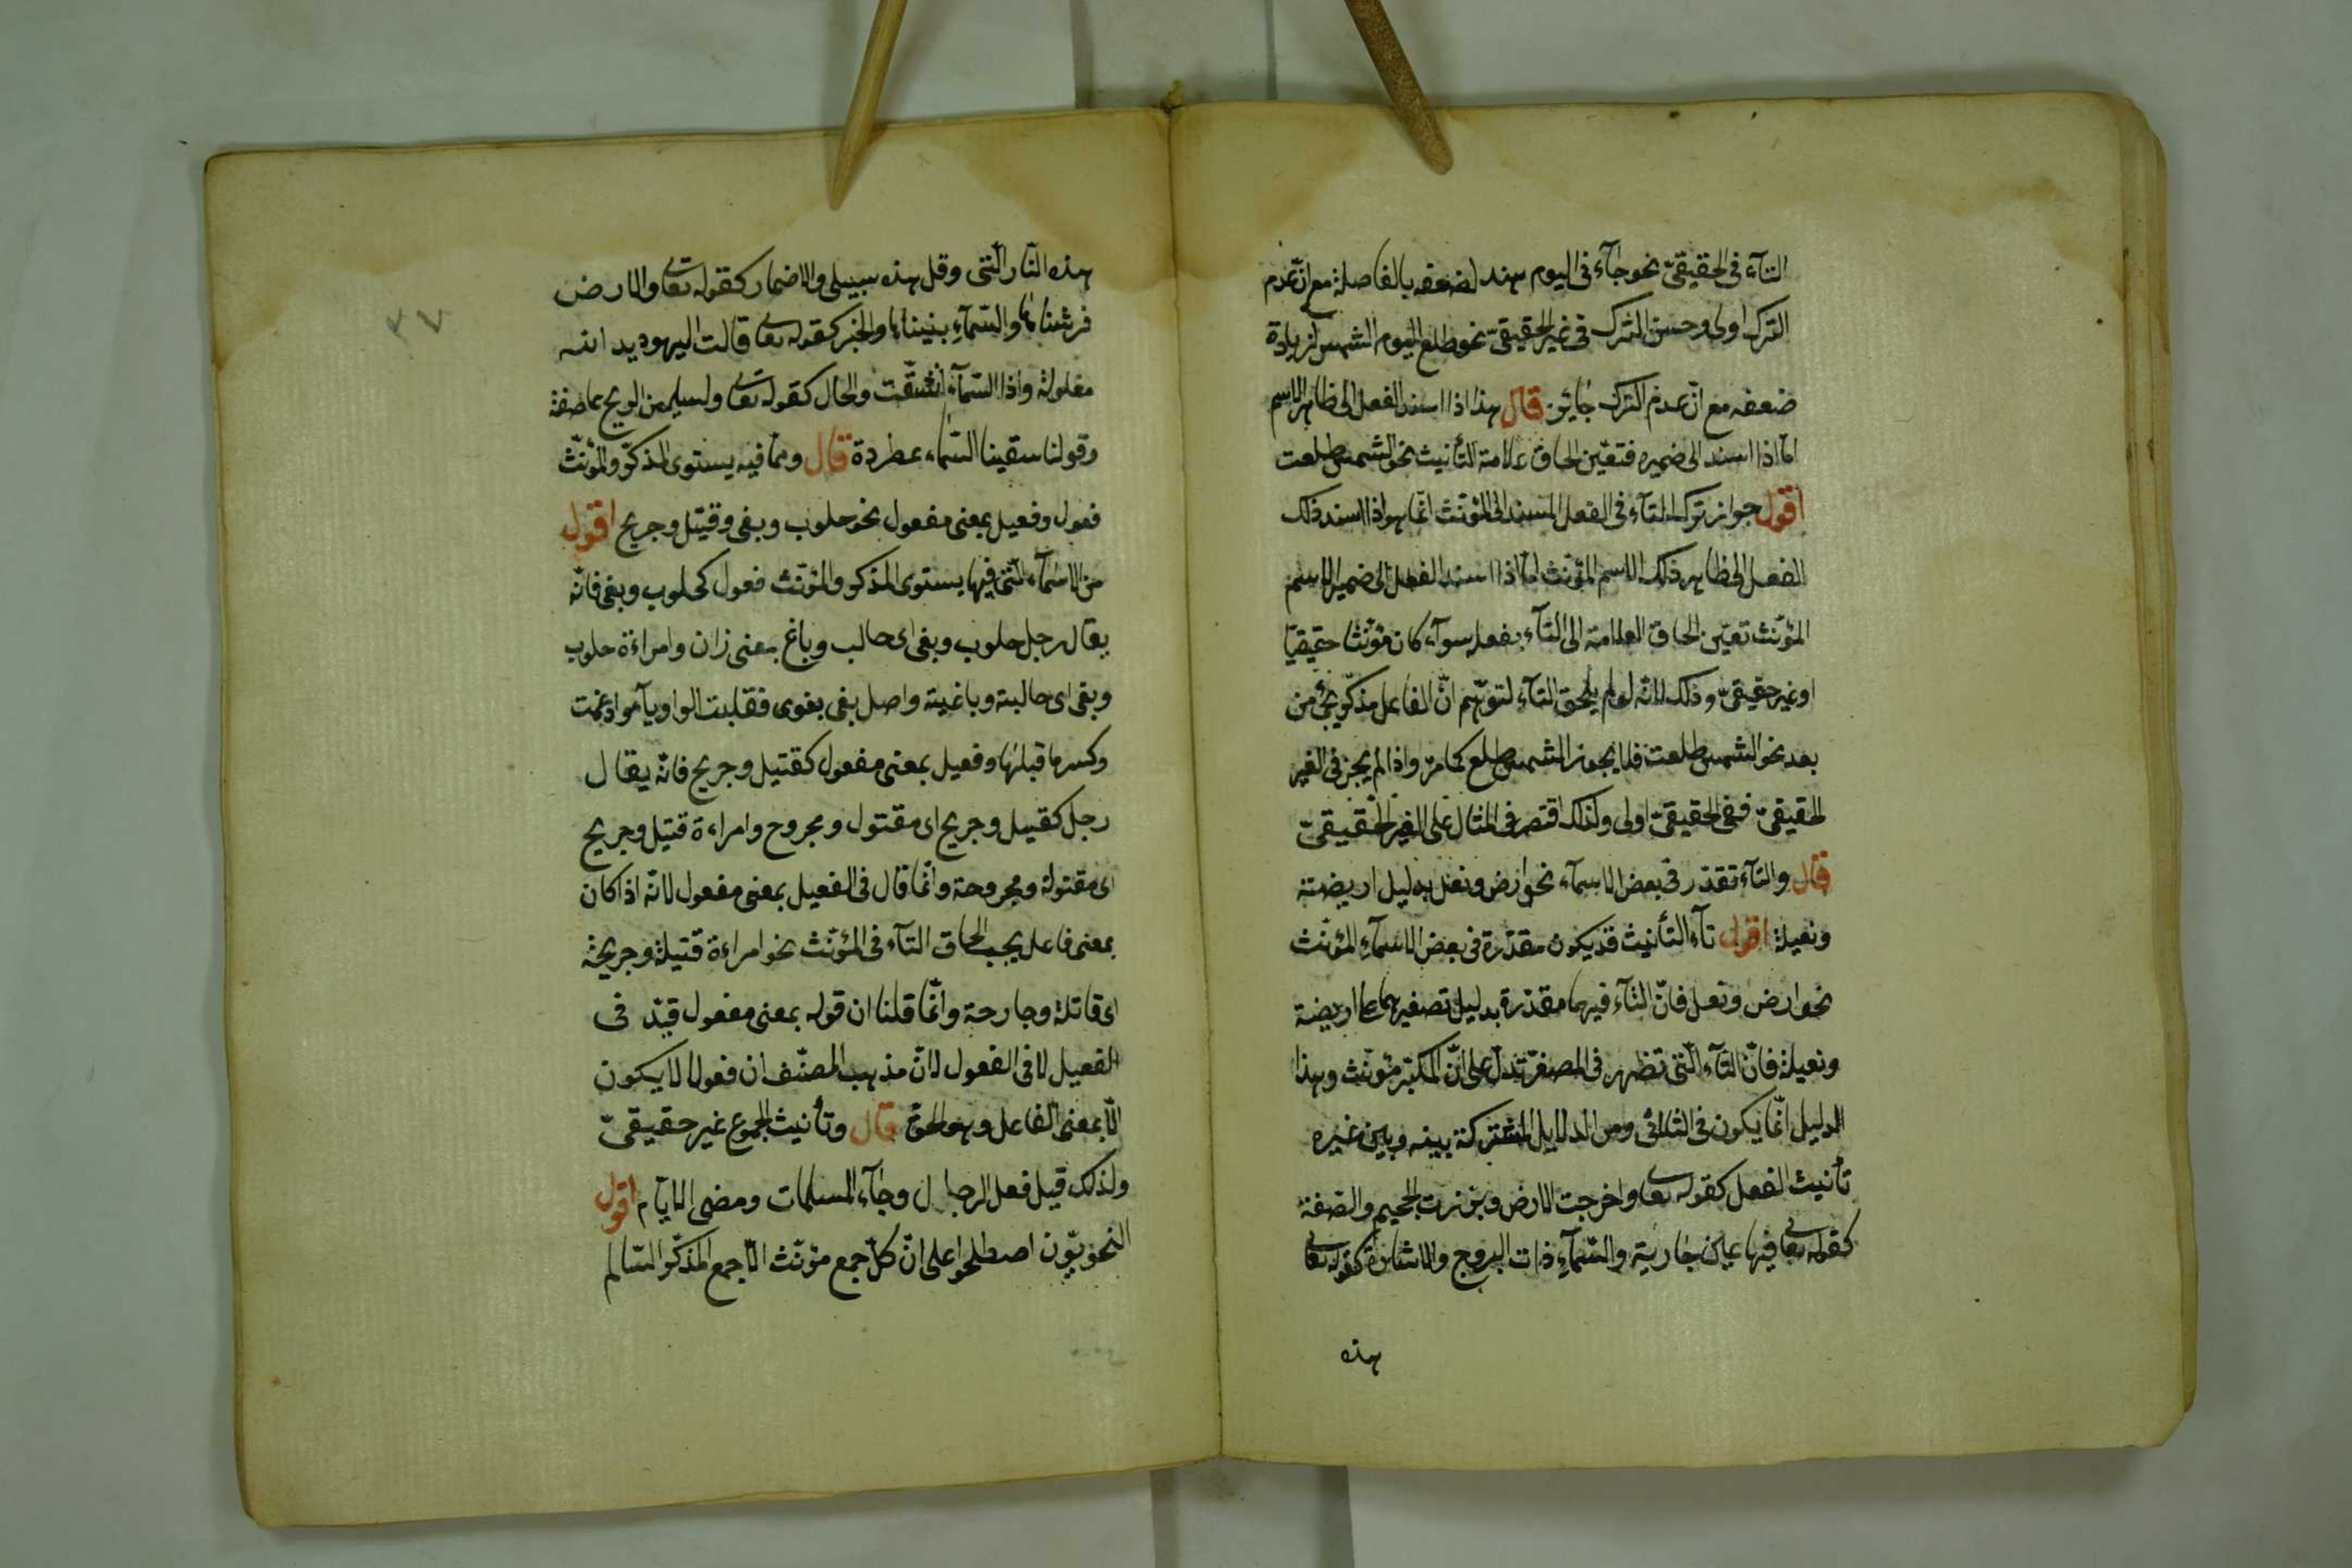 التآء فى الحقيقىّ نحو جآء فى اليوم هند لضعفه بالفاصلة مع انّ عدم
الترك اولى وحسن الترك فى غير الحقيقىّ نحو طلع اليوم الشمس لزيادة
ضعفه مع انّ عدم الترك جائز قال هذا اذا اسند الفعل الى ظاهر الاسم
امّا اذا اسند الى ضميره فتعيّن الحاق علامة التأنيث نحو الشمس طلعت
اقول جواز ترك التآء فى الفعل المسند الى المؤنّث انّما هو اذا اسند ذلك
الفعل الى ظاهر ذلك الاسم المؤنّث امّا اذا اسند الفعل الى ضمير الاسم
المؤنّث تعيّن الحاق العلامة الى التآء بفعله سوآء كان مؤنّثا حقيقيّا
او غير حقيقىّ وذلك لانّه لو لم يلحق التآء لتوهّم انّ الفاعل مذكّر يجئ من
بعد نحو الشمس طلعت فلا يجوز الشمس طلع كما مرّ واذا لم يجز فى الغير
الحقيقىّ ففى الحقيقىّ اولى ولذلك اقتصر فى المثال على الغير الحقيقىّ
قال والتآء تقدّر فى بعض الاسمآء نحو ارض ونعل بدليل اريضة
ونعيلة اقول تآء التأنيث قد يكون مقدّرة فى بعض الاسمآء المؤنّث
نحو ارض ونعل فانّ التآء فيهما مقدّرة بدليل تصغيرهما على اريضة
ونعيلة فانّ التآء الّتى تظهر فى المصغّر تدلّ على انّ المكبّر مؤنّث وهذا
الدليل انّما يكون فى الثلاثى ومن الدلايل المشتركة بينه وبين غيره
تأنيث الفعل كقوله تعا واخرجت الارض وبرّزت الجحيم والصفة
كقوله تعالى فيها عين جارية والسّمآء ذات البروج والاشارة كقوله تعالى
هذه
هذه النّار الّتى وقل هذه سبيلى والاضمار كقوله تعا والارض
فرشناها والسّمآء بنيناها والخبر كقوله تعا قالت اليهود يد الله
مغلولة واذا السّمآء انشقّت والحال كقوله تعا ولسليمن الريح عاصفة
وقولنا سقينا السّماء عطردة قال وممّا فيه يستوى المذكّر والمؤنّث
فعول وفعيل بمعنى مفعول نحو حلوب وبغى وقتيل وجريح اقول
من الاسمآء الّتى فيها يستوى المذكر والمؤنّث فعول كحلوب وبغى فانّه
يقال رجل حلوب وبغى اى حالب وباغ بمعنى زان وامراءة حلوب
وبغى اى حالبة وباغية واصل بغى بغوى فقلبت الواو يآء وادغمت
وكسر ما قبلها وفعيل بمعنى مفعول كقتيل وجريح فانّه يقال
رجل كقتيل وجريح اى مقتول ومجروح وامراءة قتيل وجريح
اى مقتولة ومجروحة وانّما قال فى الفعيل بمعنى مفعول لانّه اذا كان
بمعنى فاعل يجب الحاق التآء فى المؤنّث نحو امراءة قتيلة وجريحة
اى قاتلة وجارحة وانّما قلنا ان قوله بمعنى مفعول قيّد فى
الفعيل لا فى الفعول لانّ مذهب المصنّف ان فعولا لا يكون
الّا بمعنى الفاعل وهو الحقّ قال وتأنيث الجموع غير حقيقىّ
ولذلك قيل فعل الرجال وجآء المسلمات ومضى الايّام اقول
النحويّون اصطلحوا على انّ كلّ جمع مؤنّث الّا جمع المذكّر السّالم